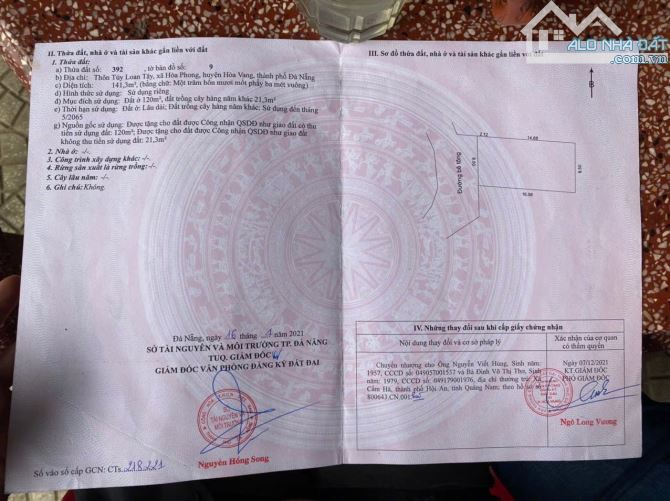 ALO NHÀ ĐẤT
II. Thửa đất, nhà ở và tài sản khác gắn liền với đất
1. Thửa đất:
a) Thửa đất số: 392 , tờ bản đồ số: 9
b) Địa chỉ: Thôn Túy Loan Tây, xã Hòa Phong, huyện Hòa Vang, thành phố Đà Nẵng
c) Diện tích: 141,3m², (bằng chữ: Một trăm bốn mươi mốt phẩy ba mét vuông)
d) Hình thức sử dụng: Sử dụng riêng
đ) Mục đích sử dụng: Đất ở 120m², đất trồng cây hàng năm khác 21,3m²
e) Thời hạn sử dụng: Đất ở: Lâu dài; Đất trồng cây hàng năm khác: Sử dụng đến tháng
5/2065
g) Nguồn gốc sử dụng: Được tặng cho đất được Công nhận QSDĐ như giao đất có thu
tiền sử dụng đất: 120m²; Được tặng cho đất được Công nhận QSDĐ như giao đất
không thu tiền sử dụng đất: 21,3m²
2. Nhà ở: -/-
3. Công trình xây dựng khác: -/-
4. Rừng sản xuất là rừng trồng: -/-
5. Cây lâu năm: -/-
6. Ghi chú: Không.
Đà Nẵng, ngày 16 tháng 4 năm 2021
SỞ TÀI NGUYÊN VÀ MÔI TRƯỜNG TP. ĐÀ NẴNG
TUQ. GIÁM ĐỐC
GIÁM ĐỐC VĂN PHÒNG ĐĂNG KÝ ĐẤT ĐAI
SỞ
TÀI NGUYÊN
MÔI TRƯỜNG
Nguyễn Hồng Song
Số vào sổ cấp GCN: CTs 218221
III. Sơ đồ thửa đất, nhà ở và tài sản khác gắn liền với đất
B
2.12
14.68
Đường bê tông
8.50
8.50
16.98
IV. Những thay đổi sau khi cấp giấy chứng nhận
Nội dung thay đổi và cơ sở pháp lý
Xác nhận của cơ quan
có thẩm quyền
Chuyển nhượng cho Ông Nguyễn Viết Hùng, Sinh năm:
1957, CCCD số: 049057001557 và Bà Đinh Võ Thị Thu, Sinh
năm: 1979, CCCD số: 049179001976, địa chỉ thường trú: Xã
Cẩm Hà, thành phố Hội An, tỉnh Quảng Nam; theo hồ sơ số
800643.CN.001
Ngày 07/12/2021
KT.GIÁM ĐỐC
PHÓ GIÁM ĐỐC
Ngô Long Vương